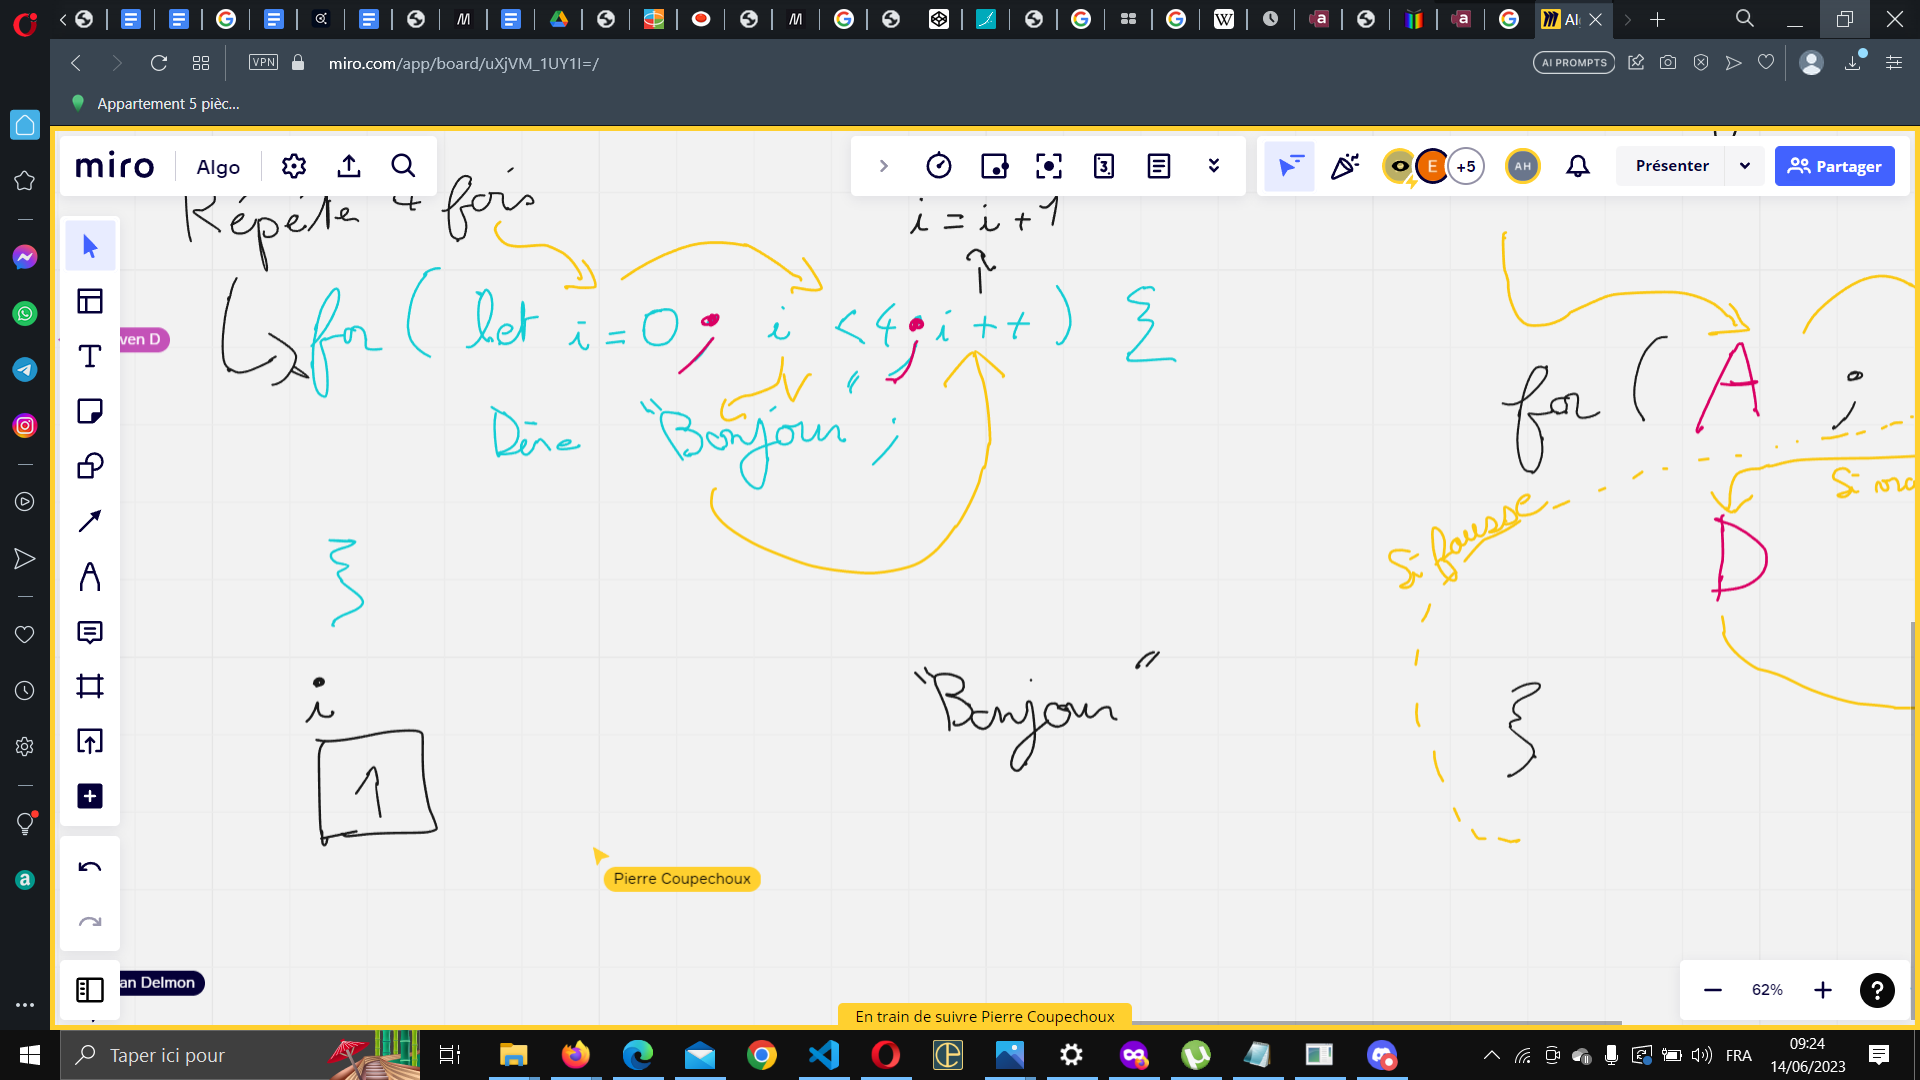 miro.com/app/board/uXjVM_1UY1I=/
VPN
AI PROMPTS
Appartement 5 pièc...
miro
Algo
3
E
+5
AH
Présenter
Partager
Répète 4 fois
i = i + 1
for ( let i = 0 ; i < 4 ; i + + ) {
Dire "Bonjour" ;
}
ven D
for ( A ;
Si fausse
Si vra
D
}
i
1
"Bonjour"
Pierre Coupechoux
an Delmon
En train de suivre Pierre Coupechoux
62%
?
Taper ici pour
FRA
09:24
14/06/2023